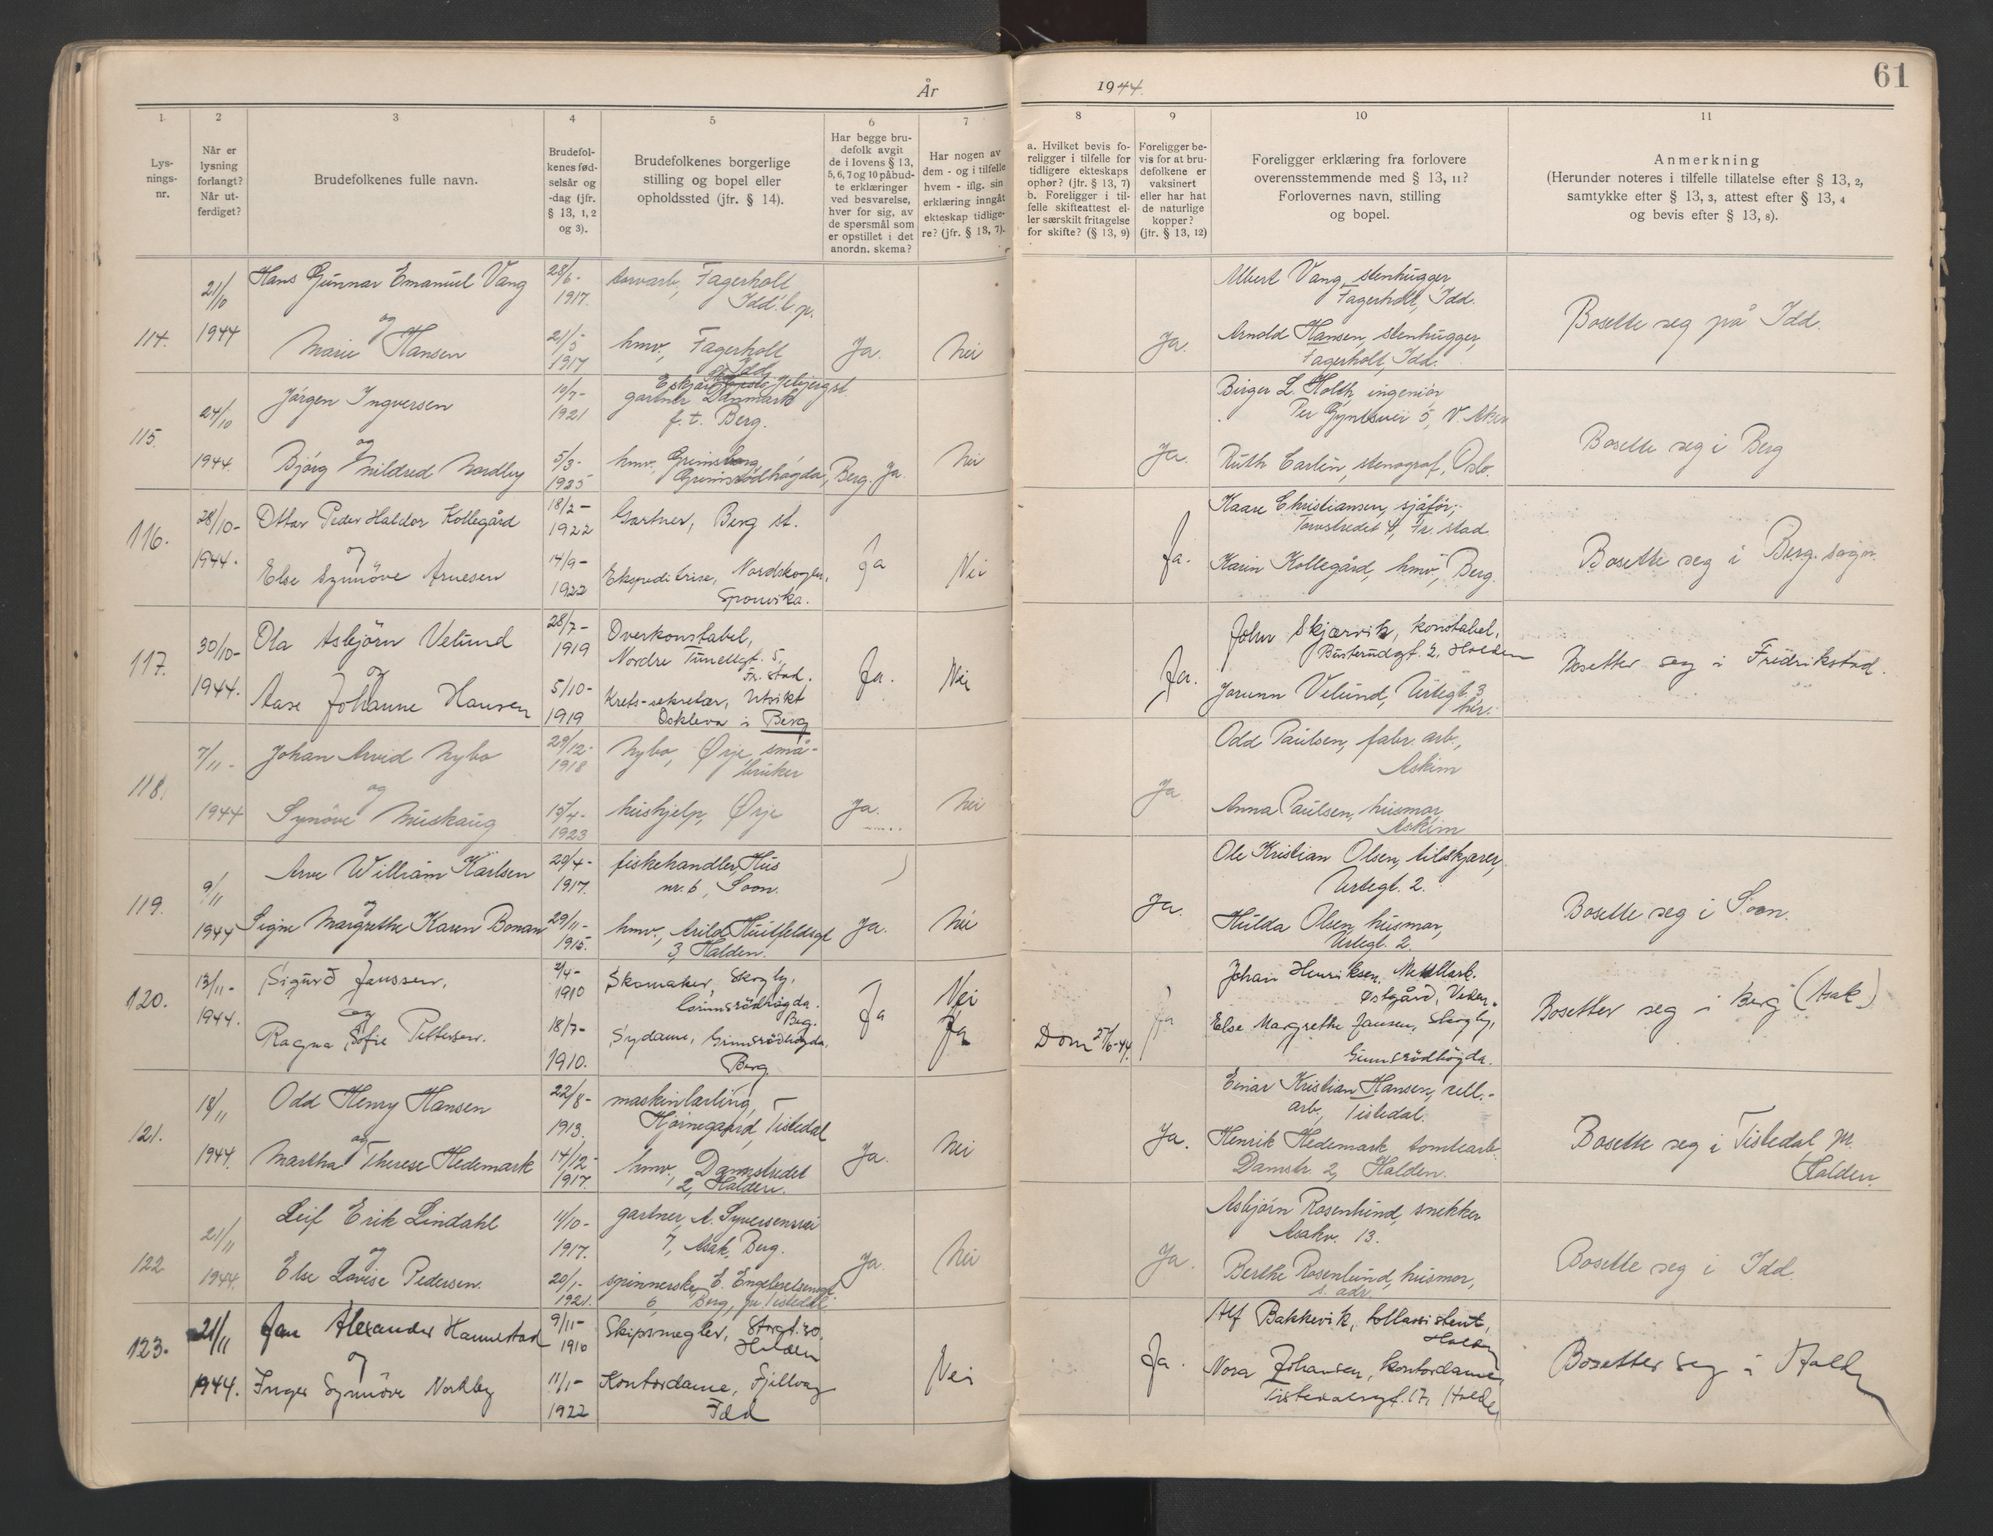 År
1944.
61
1.
2
3
4
5
6
7
8
9
10
11
Lys-
nings-
nr.
Når er
lysning
forlangt?
Når ut-
ferdiget?
Brudefolkenes fulle navn.
Brudefol-
kenes fød-
selsår og
-dag (jfr.
§ 13, 1, 2
og 3).
Brudefolkenes borgerlige
stilling og bopel eller
opholdssted (jfr. § 14).
Har begge bru-
defolk avgit
de i lovens § 13,
5, 6, 7 og 10 påbud-
te erklæringer
ved besvarelse,
hver for sig, av
de spørsmål som
er opstillet i det
anordn. skema?
Har nogen av
dem - og i tilfelle
hvem - iflg. sin
erklæring inngått
ekteskap tidlige-
re? (jfr. § 13, 7).
a. Hvilket bevis fo-
religger i tilfelle for
tidligere ekteskaps
ophør? (jfr. § 13, 7)
b. Foreligger i til-
felle skifteattest el-
ler særskilt fritagelse
for skifte? (§ 13, 9)
Foreligger be-
vis for at bru-
defolkene er
vaksinert
eller har hat
de naturlige
kopper?
(jfr. § 13, 12)
Foreligger erklæring fra forlovere
overensstemmende med § 13, 11?
Forlovernes navn, stilling
og bopel.
Anmerkning
(Herunder noteres i tilfelle tillatelse efter § 13, 2,
samtykke efter § 13, 3, attest efter § 13, 4
og bevis efter § 13, 8).
114.
1944
Hans Gunnar Emanuel Vang
og
Marie Hansen
28/6
1917.
21/5
1917
torvarb, Fagerholt
Idd
hmv, Fagerholt
Idd
Ja.
Nei
Ja.
Albert Vang, stenhugger,
Fagerholt, Idd.
Arnold Hansen, stenhugger,
Fagerholt, Idd.
Bosette seg på Idd.
115.
24/10
1944.
Jörgen Ingversen
og
Björg Mildred Nordby
1921
5/3-
1925
gartner Danmark
f. t. Berg.
hmv, Grimsrödhögda, Berg.
Ja.
Nei
Ja.
Birger L. Holth, ingeniör
Per Gyntsvei 5, V. Aker
Ruth Carlin, stenograf, Oslo.
Bosette seg i Berg
116.
28/10-
1944.
Ottar Peder Haldor Kollegård
og
Else Synnöve Arnesen
18/2-
1922
14/9-
1922
Gartner, Berg st.
Ekspeditrise, Nordskogen,
Sponvika.
Ja
Nei
Ja.
Kaare Christiansen, sjåför,
Torvstredet 4, Fr. stad
Karin Kollegård, hmv, Berg.
Bosette seg i Berg. sogn
117.
30/10-
1944.
Ola Asbjörn Velund
og
Aase Johanne Hansen
28/7-
1919
5/10-
1919
Overkonstabel,
Nordre Tunellgt. 5,
Fr. stad.
Krets-sekretær, Utsikt
Oskleva i Berg
Ja.
Nei
Ja.
John Skjærvik, konstabel,
Busterudgt. 2, Halden
Jorunn Velund, Urtegt. 3
her.
Bosetter seg i Fredrikstad.
118.
7/11-
1944
Johan Arvid Nybo
og
Synöve Huskaug
29/12-
1918
15/4-
1923
Nybo, Ørje, små-
bruker
hushjelp, Ørje
Ja.
Nei
Ja
Odd Paulsen, fabr. arb.,
Askim
Anna Paulsen, husmor,
Askim
119.
9/11
1944
Arve William Karlsen
og
Signe Margrethe Karen Boman
20/4-
1917.
29/11-
1915.
fiskehandler, Hus
nr. 6, Soon.
hmv, Arild Huitfeldsgt
3, Halden.
Ja.
Nei
Ja.
Ole Kristian Olsen, tilskjærer,
Urtegt. 2.
Hulda Olsen, husmor,
Urtegt. 2.
Bosette seg i Soon.
120.
13/11-
1944.
Sigurd Janssen,
og
Ragna Sofie Pettersen.
2/4-
1910
18/7-
1910.
Skomaker, Skogly,
Grimsrödhögda.
Berg.
Sydame, Grimsrödhögda,
Berg.
Ja
Nei
Ja
Dom
Ja
Johan Henriksen, Metallarb.
Østgård, Veden.
Else Margrethe Jansen, Skogly,
Grimsrödhögda.
Bosetter seg i Berg (Asak)
121.
18/11
1944.
Odd Henry Hansen
og
Martha Therese Hedemark
22/8-
1913,
14/12-
1917.
maskinlærling,
Hjörnegaard, Tistedal
hmv, Damstredet
2, Halden.
Ja.
Nei
Ja.
Einar Kristian Hansen, cell.-
arb, Tistedal.
Henrik Hedemark tomtearb.
Damstr. 2, Halden.
Bosette seg i Tistedal pr.
Halden.
122
21/11
1944.
Leif Erik Lindahl
og
Else Lovise Pedersen.
11/10-
1917.
20/1-
1921.
gartner, A. Syversensvei
7, Asak, Berg.
spinnerske, E. Engebretsensgt
6, Berg, pr Tistedal
Ja.
Nei
Ja.
Asbjörn Rosenlund, snekker
Asakv. 13.
Berthe Rosenlund, husmor,
s. adr.
Bosette seg i Idd.
123.
21/11
1944.
Jan Alexander Hannestad
og
Inger Synnöve Norkby
9/11-
1910
11/1-
1922
Skipsmegler, Storgt. 20.
Halden
Kontordame, Fjellvåg
Idd
Nei
Ja.
Alf Bakkevik, tollassistent,
Halden
Nora Johansen, kontordame,
Tistedalsgt. 17, Halden
Bosetter seg i Halden